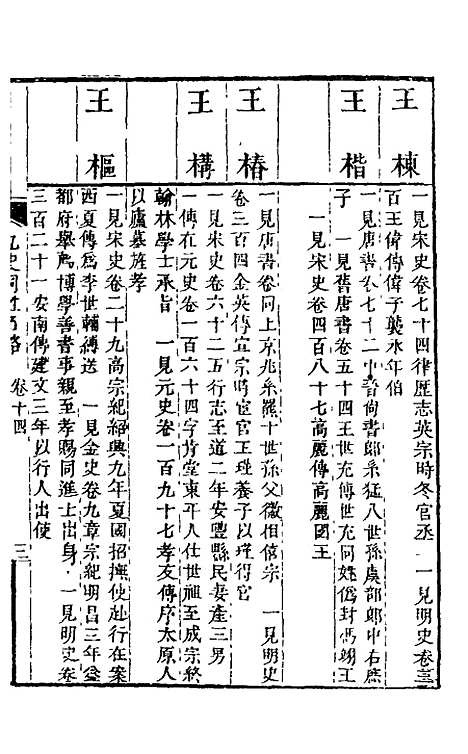 王棟
一見宋史卷七十四律歷志英宗時冬官丞　一見明史卷三
百王偉傳偉子襲永年伯
王楷
一見唐書卷七十二中晉尚書郎系猛八世孫虞部郎中右庶
子　一見舊唐書卷五十四王世充傳世充同姓僞封馮翊王
一見宋史卷四百八十七高麗傳高麗國王
王椿
一見唐書卷同上京兆系羆十世孫父徽相僖宗　一見明史
卷三百四金英傳宣宗時宦官王瑾養子以瑾得官
王構
一見宋史卷六十二五行志至道二年安豐縣民妻產三男
一傳在元史卷一百六十四字肯堂東平人仕世祖至成宗終
翰林學士承旨　一見元史卷一百九十七孝友傳序太原人
以廬墓旌孝
王樞
一見宋史卷二十九高宗紀紹興九年夏國招撫使赴行在案
西夏傳爲李世輔縛送　一見金史卷九章宗紀明昌三年益
都府舉爲博學善書事親至孝賜同進士出身　一見明史卷
三百二十一安南傳建文三年以行人出使
九史同姓名略　卷十四　三